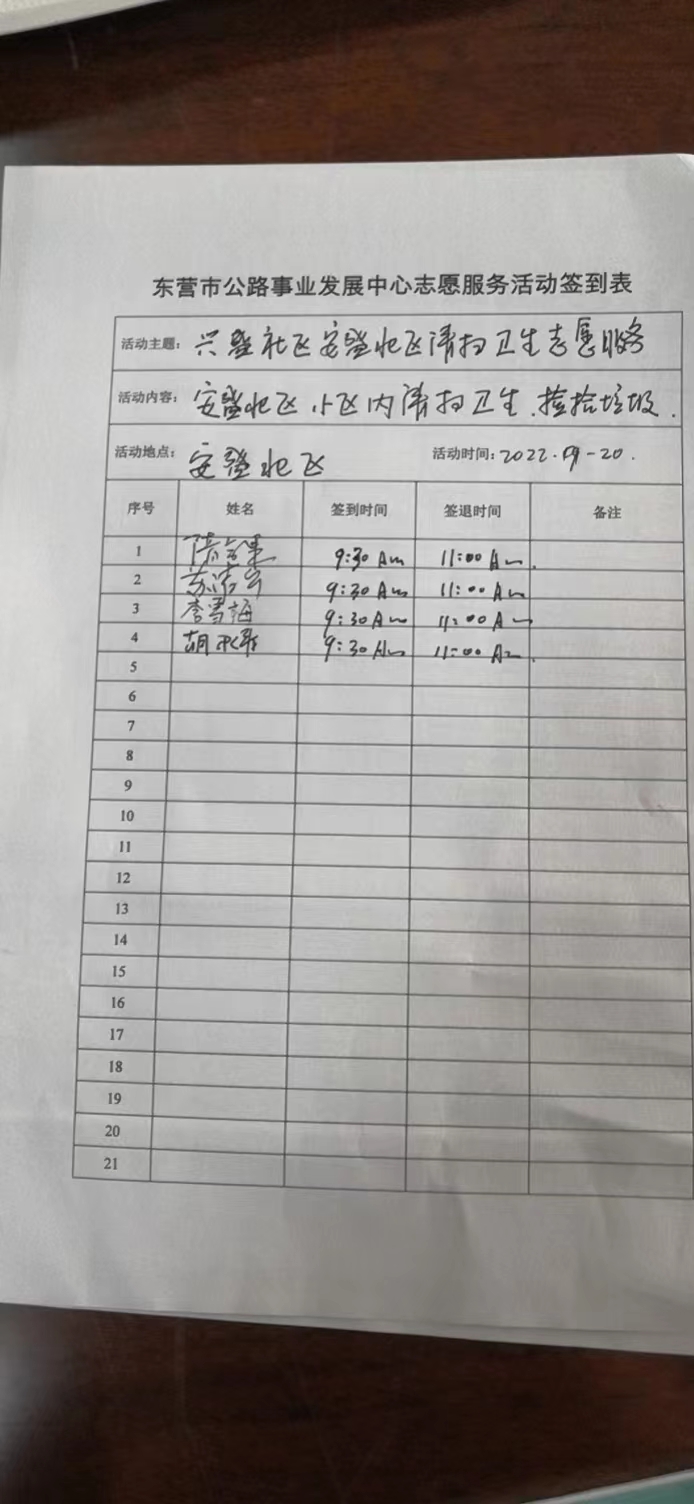 东营市公路事业发展中心志愿服务活动签到表
活动主题：兴盛社区安盛北区清扫卫生志愿服务
活动内容：安盛北区小区内清扫卫生.捡拾垃圾.
活动地点：安盛北区 活动时间：2022.09-20.
序号 姓名 签到时间 签退时间 备注
1 9:30 Am 11:00 Am.
2 9:30 Am 11:00 Am
3 李雪梅 9:30 Am 11:00 Am
4 胡 9:30 Am 11:00 Am.
5
6
7
8
9
10
11
12
13
14
15
16
17
18
19
20
21